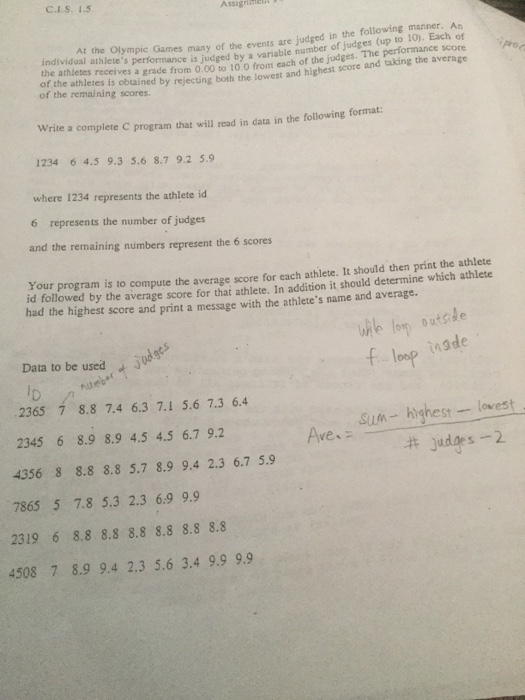 C.I.S. 1.5
At the Olympic Games many of the events are judged in the following manner. An
individual athlete's performance is judged by a variable number of judges (up to 10). Each of
the athletes receives a grade from 0.00 to 10.0 from each of the judges. The performance score
of the athletes is obtained by rejecting both the lowest and highest score and taking the average
of the remaining scores.
Write a complete C program that will read in data in the following format:
1234 6 4.5 9.3 5.6 8.7 9.2 5.9
where 1234 represents the athlete id
6 represents the number of judges
and the remaining numbers represent the 6 scores
Your program is to compute the average score for each athlete. It should then print the athlete
id followed by the average score for that athlete. In addition it should determine which athlete
had the highest score and print a message with the athlete's name and average.
while loop outside
f loop inside
Data to be used
ID number of judges
2365 7 8.8 7.4 6.3 7.1 5.6 7.3 6.4
2345 6 8.9 8.9 4.5 4.5 6.7 9.2
4356 8 8.8 8.8 5.7 8.9 9.4 2.3 6.7 5.9
7865 5 7.8 5.3 2.3 6.9 9.9
2319 6 8.8 8.8 8.8 8.8 8.8 8.8
4508 7 8.9 9.4 2.3 5.6 3.4 9.9 9.9
Ave. = sum - highest - lowest
# judges - 2